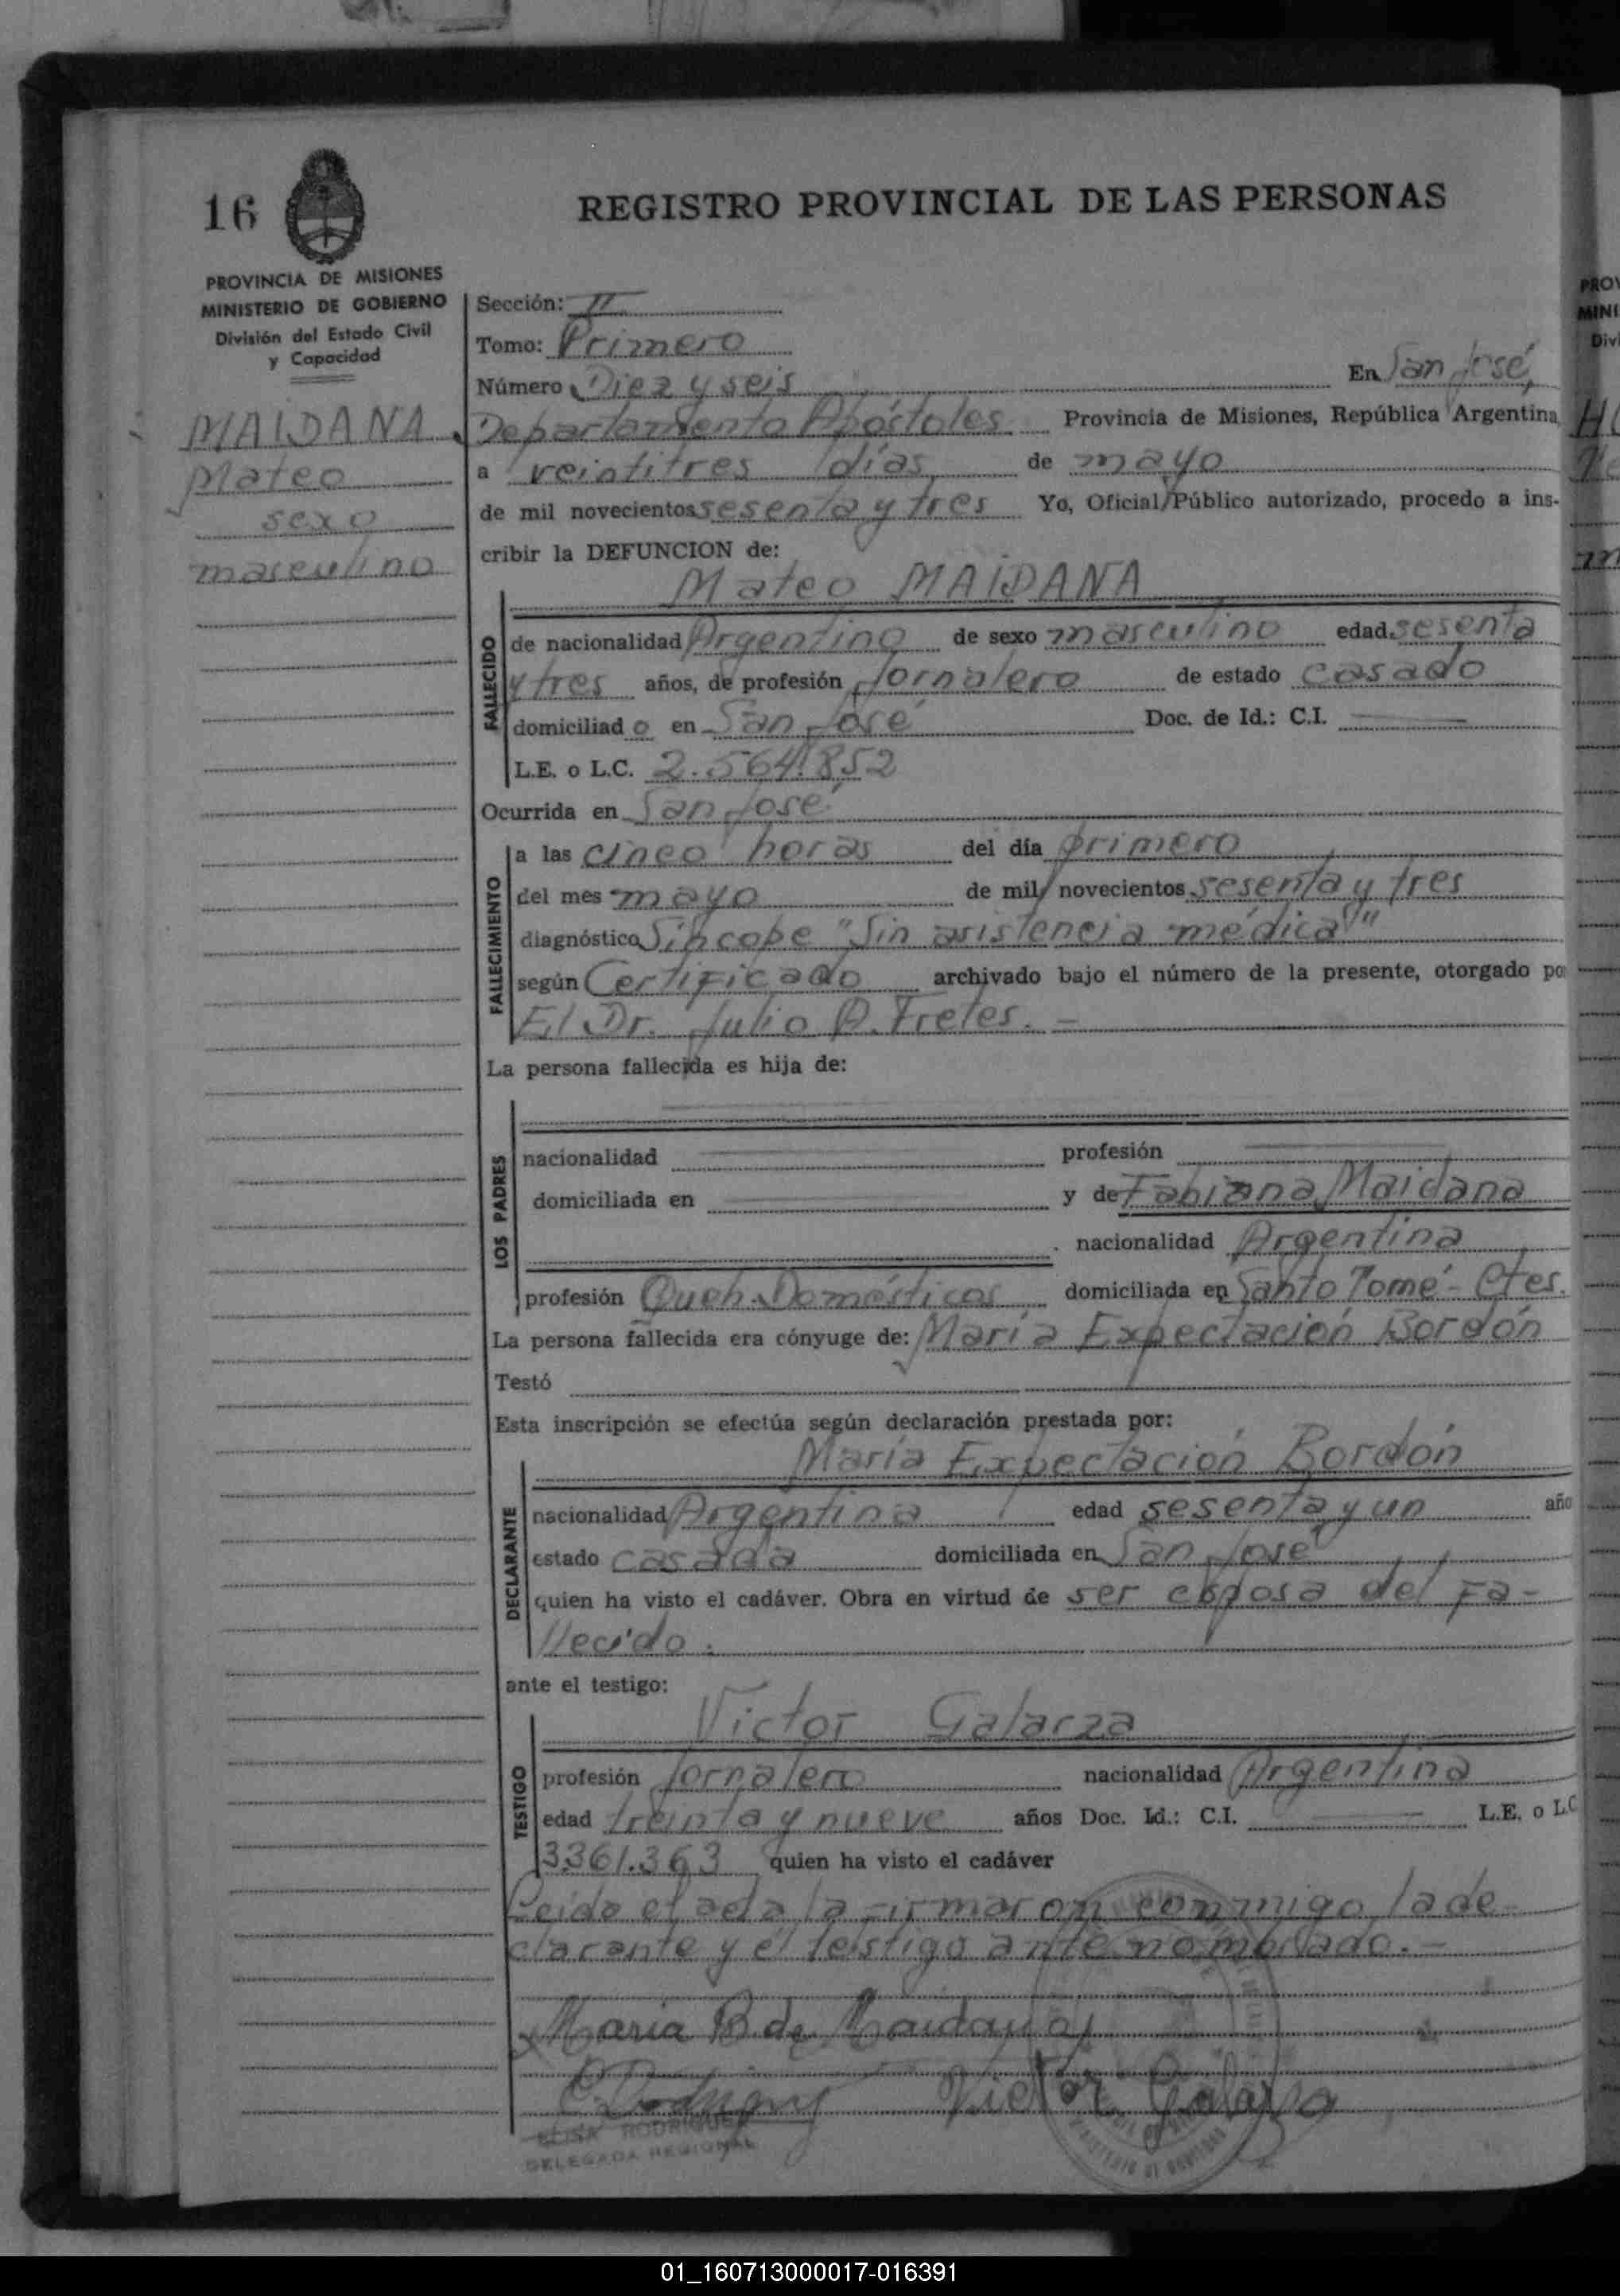 16
REGISTRO PROVINCIAL DE LAS PERSONAS
PROVINCIA DE MISIONES
MINISTERIO DE GOBIERNO
División del Estado Civil
y Capacidad
MAIDANA
Mateo
sexo
masculino
Sección: II
Tomo: Primero
Número Diez y seis En San José,
Departamento Apóstoles Provincia de Misiones, República Argentina
a veintitres días de mayo
de mil novecientos sesenta y tres Yo, Oficial Público autorizado, procedo a ins-
cribir la DEFUNCION de:
Mateo MAIDANA
FALLECIDO
de nacionalidad Argentino de sexo masculino edad sesenta
y tres años, de profesión Jornalero de estado casado
domiciliado en San José Doc. de Id.: C.I.
L.E. o L.C. 2.564.852
Ocurrida en San José
FALLECIMIENTO
a las cinco horas del día primero
del mes mayo de mil novecientos sesenta y tres
diagnóstico Síncope "Sin asistencia médica"
según Certificado archivado bajo el número de la presente, otorgado po
El Dr. Julio A. Fretes. -
La persona fallecida es hija de:
LOS PADRES
nacionalidad profesión
domiciliada en y de Fabiana Maidana
nacionalidad Argentina
profesión Queh. Domésticos domiciliada en Santo Tomé - Ctes.
La persona fallecida era cónyuge de: María Expectación Bordón
Testó
Esta inscripción se efectúa según declaración prestada por:
María Expectación Bordón
DECLARANTE
nacionalidad Argentina edad sesenta y un año
estado casada domiciliada en San José
quien ha visto el cadáver. Obra en virtud de ser esposa del fa-
llecido.
ante el testigo:
Victor Galarza
TESTIGO
profesión Jornalero nacionalidad Argentina
edad treinta y nueve años Doc. Id.: C.I. L.E. o LC
3361.363 quien ha visto el cadáver
Leído el acta la firmaron conmigo la de-
clarante y el testigo ante nombrado. -
Maria B. de Maidana
Victor Galarza
ELISA RODRIGUEZ
DELEGADA REGIONAL
01_160713000017-016391